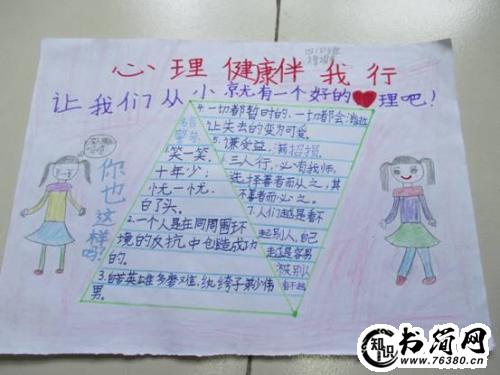 心理健康伴我行
让我们从小就有一个好的理吧!
你也
这样
吗!
1.笑一笑,
十年少;
忧一忧,
白了头。
2.一个人是在同周围环
境的反抗中创造成功
的。
3.自古英雄多磨难,纨绔子弟少伟
男。
4.一切都暂时的,一切都会消逝
让失去的变为可爱。
5.谦受益,满招损。
三人行,必有我师,
选择善者而从之,其
不善者而改之。
7.人们越是看不
起别人,自己
越容易
被别人
看不起
知识
书简网
www.76380.cn